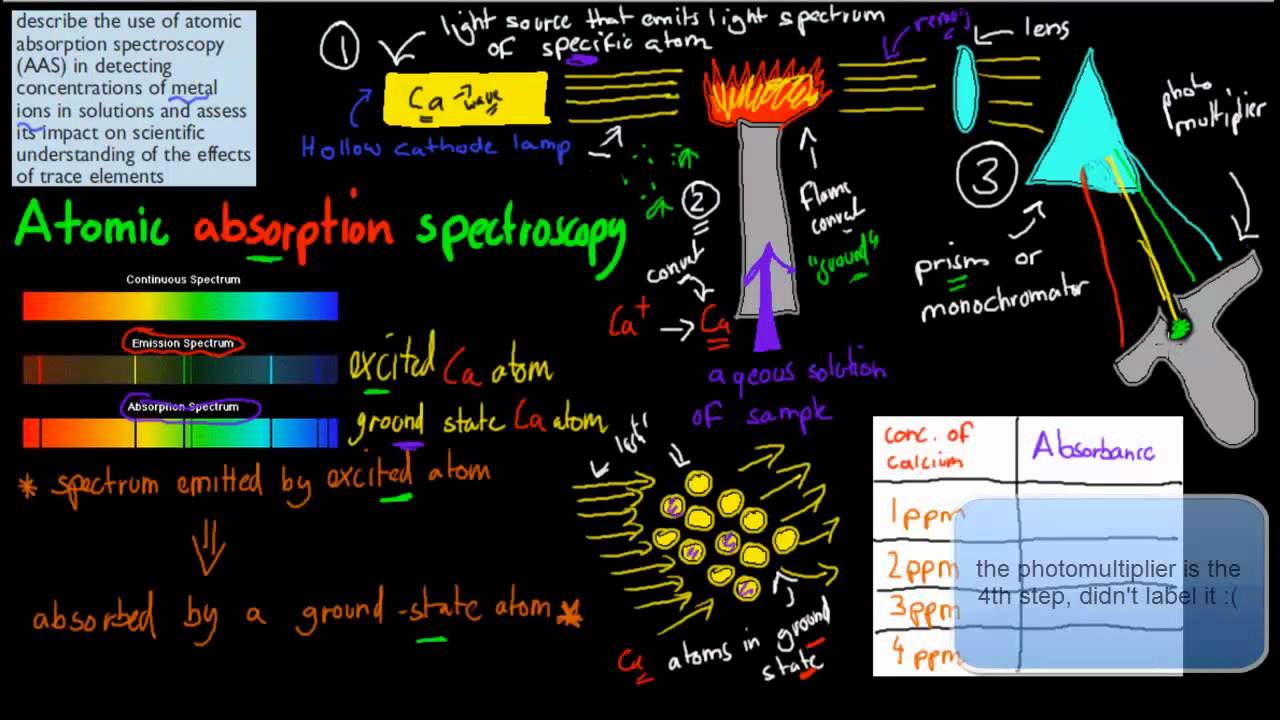 describe the use of atomic
absorption spectroscopy
(AAS) in detecting
concentrations of metal
ions in solutions and assess
its impact on scientific
understanding of the effects
of trace elements
1
light source that emits light spectrum
of specific atom
Ca → wave
Hollow cathode lamp
lens
photo
multiplier
3
prism or
monochromator
2
flame
convat
"ground"
convat
Ca+ → Ca
aqeous solution
of sample
Atomic absorption spectroscopy
Continuous Spectrum
Emission Spectrum
excited Ca atom
Absorption Spectrum
ground state Ca atom
* spectrum emitted by excited atom
⇓
absorbed by a ground-state atom *
Ca atoms in ground
state
conc. of
calcium
Absorbance
1 ppm
2 ppm
3 ppm
4 ppm
the photomultiplier is the
4th step, didn't label it :(